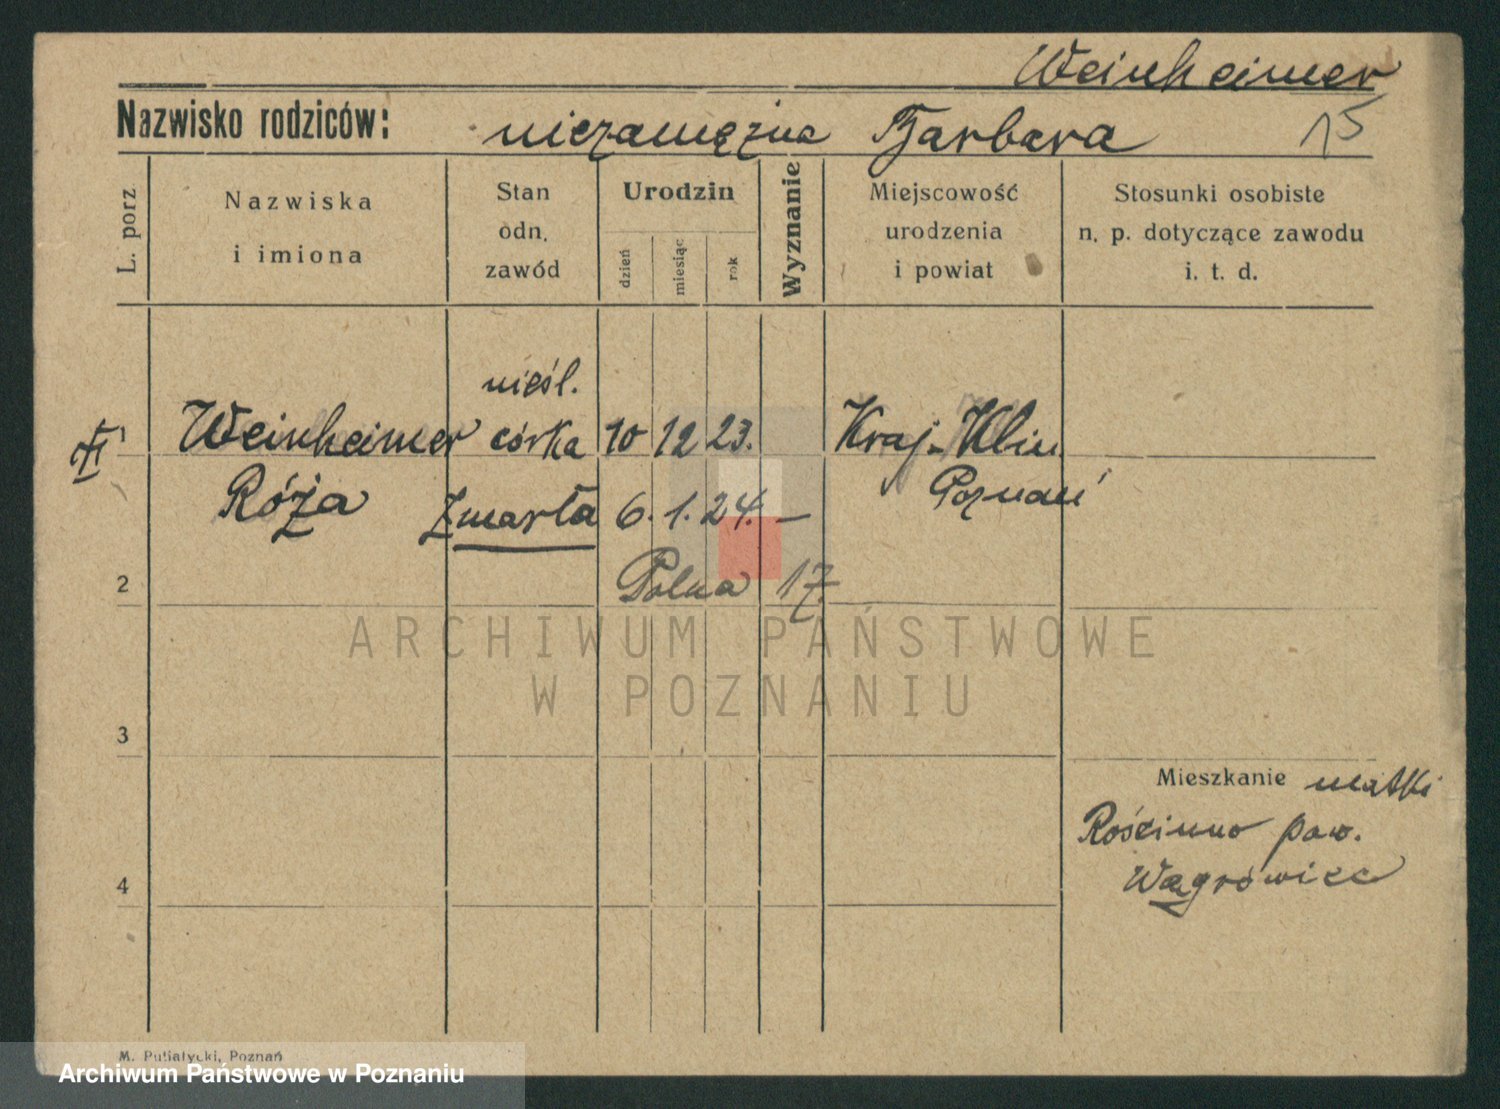 Weinheimer
Nazwisko rodziców: niezamężna Barbara 15
L. porz
Nazwiska
i imiona
Stan
odn.
zawód
Urodzin
dzień
miesiąc
rok
Wyznanie
Miejscowość
urodzenia
i powiat
Stosunki osobiste
n. p. dotyczące zawodu
i. t. d.
nieśl.
1 Weinheimer córka 10 12 23. Kraj. Klin
Róża Zmarła 6. 1. 24. — Poznań
2 Polna 17.
ARCHIWUM PAŃSTWOWE
W POZNANIU
3
Mieszkanie matki
Rościnno pow.
Wągrówiec
4
M. Putiatycki, Poznań
Archiwum Państwowe w Poznaniu